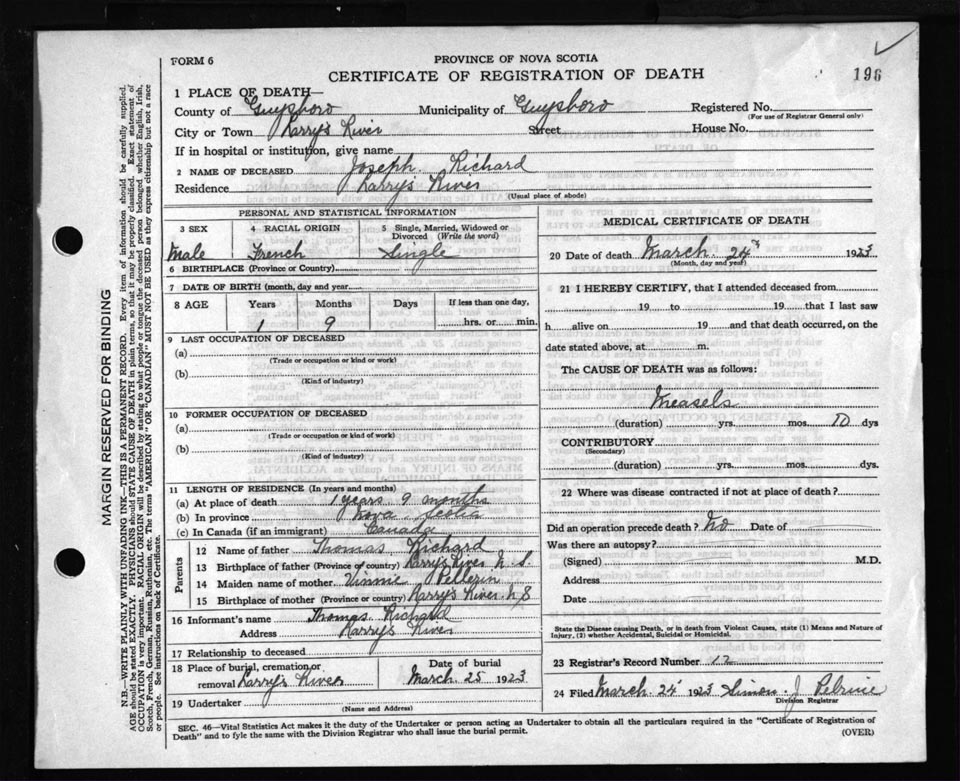 196
FORM 6
PROVINCE OF NOVA SCOTIA
CERTIFICATE OF REGISTRATION OF DEATH
1 PLACE OF DEATH—
County of Guysboro Municipality of Guysboro Registered No.
(For use of Registrar General only)
City or Town Larry's River Street House No.
If in hospital or institution, give name
2 NAME OF DECEASED Joseph Richard
Residence Larrys River
(Usual place of abode)
PERSONAL AND STATISTICAL INFORMATION
3 SEX 4 RACIAL ORIGIN 5 Single, Married, Widowed or Divorced (Write the word)
Male French Single
6 BIRTHPLACE (Province or Country)
7 DATE OF BIRTH (month, day and year)
8 AGE Years Months Days If less than one day,
1 9 hrs. or min.
9 LAST OCCUPATION OF DECEASED
(a)
(Trade or occupation or kind or work)
(b)
(Kind of industry)
10 FORMER OCCUPATION OF DECEASED
(a)
(Trade or occupation or kind of work)
(b)
(Kind of industry)
11 LENGTH OF RESIDENCE (In years and months)
(a) At place of death 1 years 9 months
(b) In province Nova Scotia
(c) In Canada (if an immigrant) Canada
Parents
12 Name of father Thomas Richard
13 Birthplace of father (Province or country) Larrys River N. S.
14 Maiden name of mother Vinnie Pellerin
15 Birthplace of mother (Province or country) Larrys River N S
16 Informant's name Thomas Richard
Address Larrys River
17 Relationship to deceased
18 Place of burial, cremation or removal Larrys River Date of burial March 25 1923
19 Undertaker
(Name and Address)
MEDICAL CERTIFICATE OF DEATH
20 Date of death March 24th 1923
(Month, day and year)
21 I HEREBY CERTIFY, that I attended deceased from
19 to 19 that I last saw
h alive on 19 and that death occurred, on the
date stated above, at m.
The CAUSE OF DEATH was as follows:
Measels
(duration) yrs. mos. 10 dys
CONTRIBUTORY
(Secondary)
(duration) yrs. mos. dys.
22 Where was disease contracted if not at place of death?
Did an operation precede death? No Date of
Was there an autopsy?
(Signed) M.D.
Address
Date
State the Disease causing Death, or in death from Violent Causes, state (1) Means and Nature of
Injury, (2) whether Accidental, Suicidal or Homicidal.
23 Registrar's Record Number 12
24 Filed March 24 1923 Simon J Pelrine
Division Registrar
SEC. 46—Vital Statistics Act makes it the duty of the Undertaker or person acting as Undertaker to obtain all the particulars required in the "Certificate of Registration of
Death" and to fyle the same with the Division Registrar who shall issue the burial permit.
(OVER)
MARGIN RESERVED FOR BINDING
N.B.—WRITE PLAINLY WITH UNFADING INK—THIS IS A PERMANENT RECORD. Every item of information should be carefully supplied.
AGE should be stated EXACTLY. PHYSICIANS should STATE CAUSE OF DEATH in plain terms, so that it may be properly classified. Exact statement of
OCCUPATION is very important. RACIAL ORIGIN will be described by stating to what people or tongue the deceased person belonged, whether English, Irish,
Scotch, French, German, Russian, Ruthenian, etc. The terms "AMERICAN" OR "CANADIAN" MUST NOT BE USED as they express citizenship but not a race
or people. See instructions on back of Certificate.